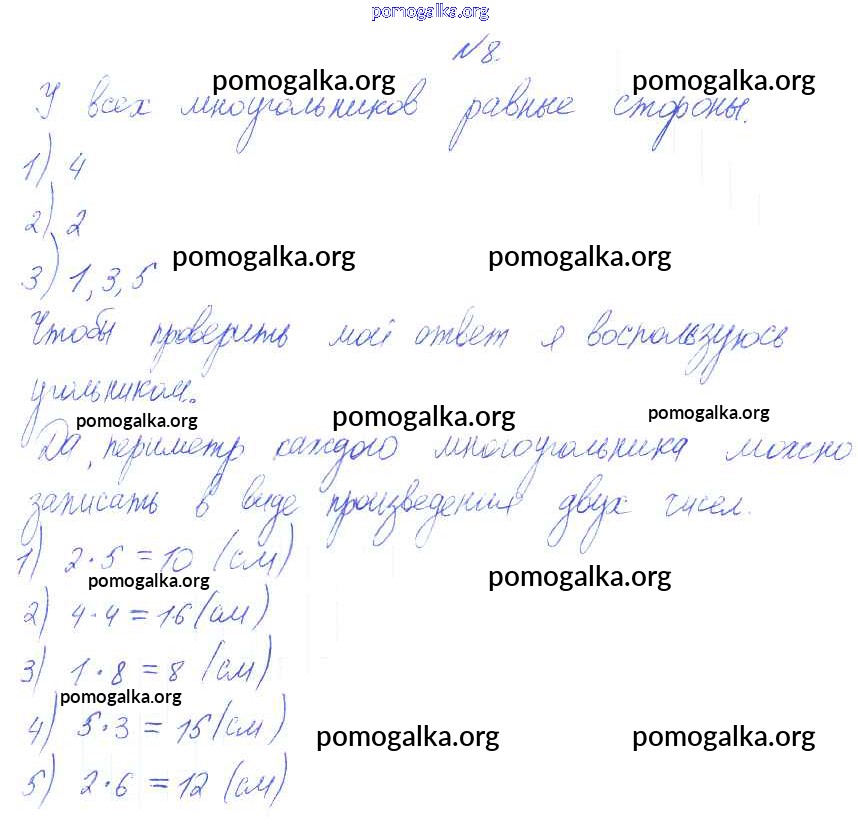 pomogalka.org
№8.
pomogalka.org pomogalka.org
У всех многоугольников равные стороны.
1) 4
2) 2
pomogalka.org pomogalka.org
3) 1, 3, 5
Чтобы проверить мой ответ я воспользуюсь
угольником.
pomogalka.org pomogalka.org pomogalka.org
Да, периметр каждого многоугольника можно
записать в виде произведения двух чисел.
1) 2·5=10 (см)
pomogalka.org pomogalka.org
2) 4·4=16 (см)
3) 1·8=8 (см)
pomogalka.org
4) 5·3=15 (см)
pomogalka.org pomogalka.org
5) 2·6=12 (см)